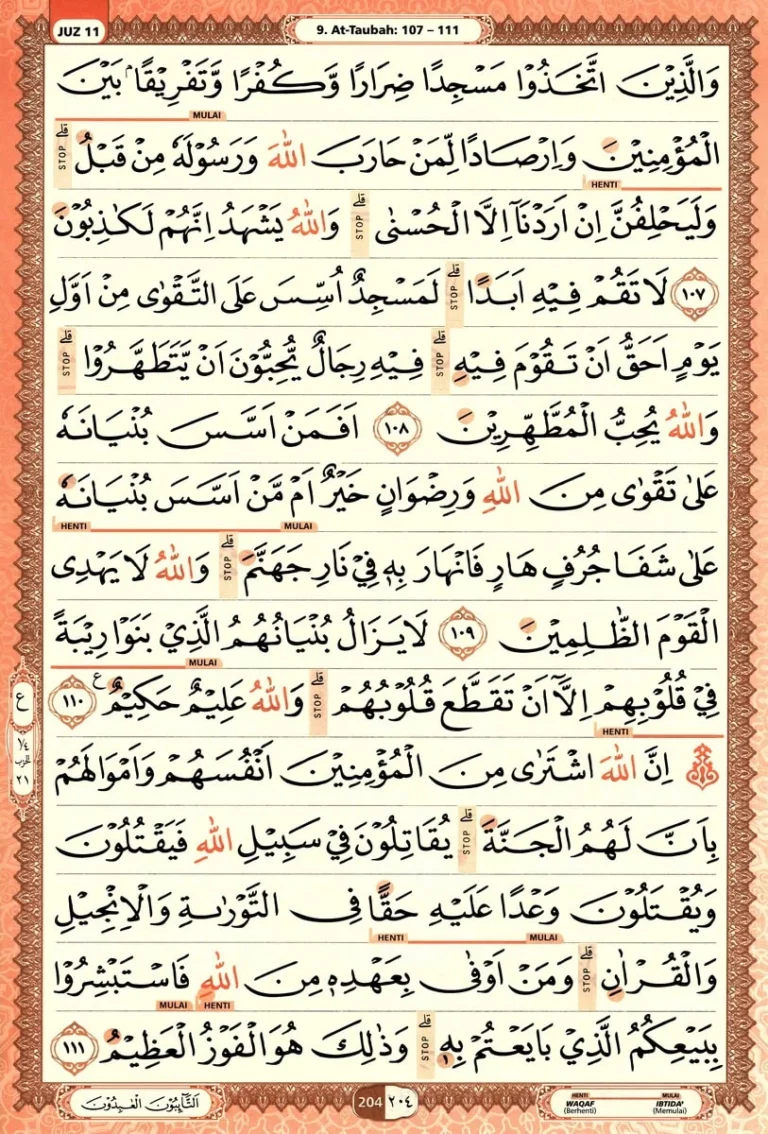 JUZ 11
9. At-Taubah: 107 – 111
وَالَّذِيْنَ اتَّخَذُوْا مَسْجِدًا ضِرَارًا وَّكُفْرًا وَّتَفْرِيْقًاۢ بَيْنَ
MULAI
الْمُؤْمِنِيْنَ وَاِرْصَادًا لِّمَنْ حَارَبَ اللّٰهَ وَرَسُوْلَهٗ مِنْ قَبْلُ ۗ STOP
HENTI
وَلَيَحْلِفُنَّ اِنْ اَرَدْنَآ اِلَّا الْحُسْنٰى ۗ STOP وَاللّٰهُ يَشْهَدُ اِنَّهُمْ لَكٰذِبُوْنَ
١٠٧ لَا تَقُمْ فِيْهِ اَبَدًا ۗ STOP لَمَسْجِدٌ اُسِّسَ عَلَى التَّقْوٰى مِنْ اَوَّلِ
يَوْمٍ اَحَقُّ اَنْ تَقُوْمَ فِيْهِ ۗ STOP فِيْهِ رِجَالٌ يُّحِبُّوْنَ اَنْ يَّتَطَهَّرُوْا ۗ STOP
وَاللّٰهُ يُحِبُّ الْمُطَّهِّرِيْنَ ١٠٨ اَفَمَنْ اَسَّسَ بُنْيَانَهٗ
عَلٰى تَقْوٰى مِنَ اللّٰهِ وَرِضْوَانٍ خَيْرٌ اَمْ مَّنْ اَسَّسَ بُنْيَانَهٗ
MULAI HENTI
عَلٰى شَفَا جُرُفٍ هَارٍ فَانْهَارَ بِهٖ فِيْ نَارِ جَهَنَّمَ ۗ STOP وَاللّٰهُ لَا يَهْدِى
الْقَوْمَ الظّٰلِمِيْنَ ١٠٩ لَا يَزَالُ بُنْيَانُهُمُ الَّذِيْ بَنَوْا رِيْبَةً
MULAI
فِيْ قُلُوْبِهِمْ اِلَّآ اَنْ تَقَطَّعَ قُلُوْبُهُمْ ۗ STOP وَاللّٰهُ عَلِيْمٌ حَكِيْمٌ ࣖ ١١٠
HENTI
ع
١/٤
الحزب
٢١
اِنَّ اللّٰهَ اشْتَرٰى مِنَ الْمُؤْمِنِيْنَ اَنْفُسَهُمْ وَاَمْوَالَهُمْ
بِاَنَّ لَهُمُ الْجَنَّةَ ۗ STOP يُقَاتِلُوْنَ فِيْ سَبِيْلِ اللّٰهِ فَيَقْتُلُوْنَ
وَيُقْتَلُوْنَ وَعْدًا عَلَيْهِ حَقًّا فِى التَّوْرٰىةِ وَالْاِنْجِيْلِ
MULAI HENTI
وَالْقُرْاٰنِ ۗ STOP وَمَنْ اَوْفٰى بِعَهْدِهٖ مِنَ اللّٰهِ فَاسْتَبْشِرُوْا
HENTI MULAI
بِبَيْعِكُمُ الَّذِيْ بَايَعْتُمْ بِهٖ ۗ STOP وَذٰلِكَ هُوَ الْفَوْزُ الْعَظِيْمُ ١١١
اَلتَّاۤىِٕبُوْنَ الْعٰبِدُوْنَ
204 ٢٠٤
HENTI WAQAF (Berhenti) MULAI IBTIDA' (Memulai)